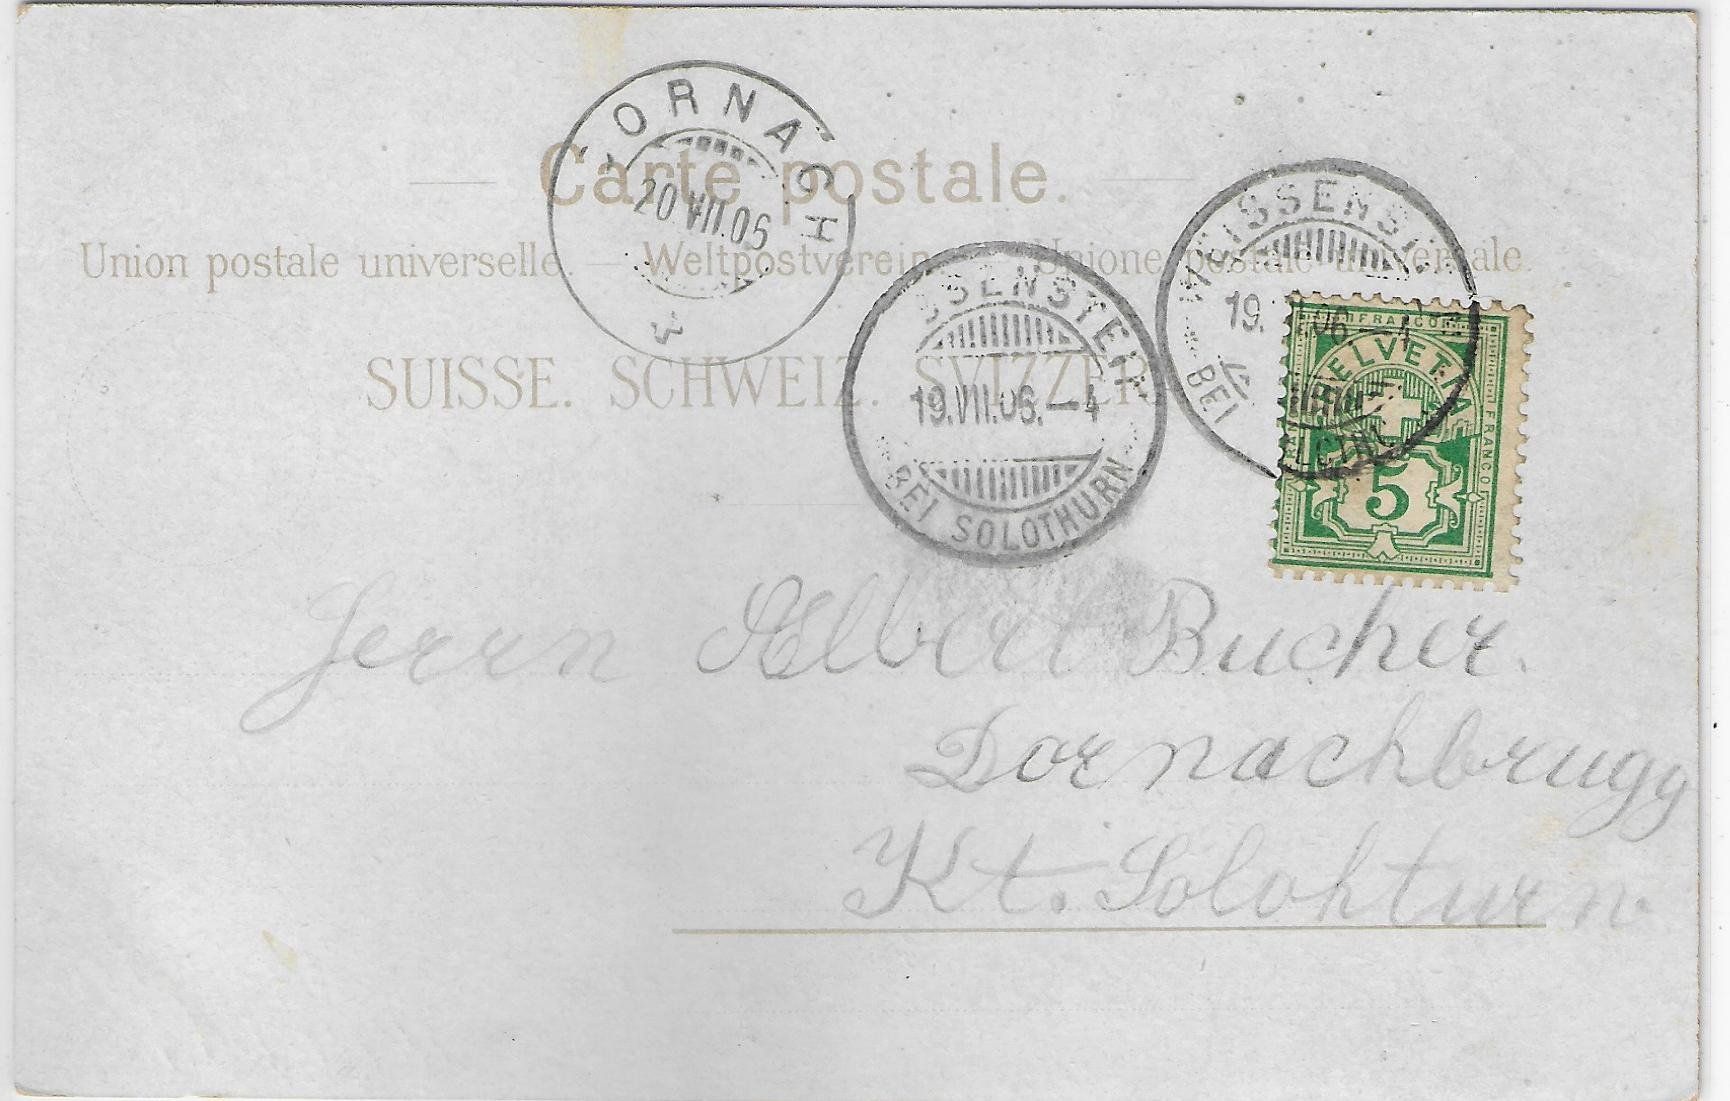 Carte postale.
Union postale universelle. — Weltpostverein. — Unione postale universale.
SUISSE. SCHWEIZ. SVIZZERA.
DORNACH
20.VII.06
WEISSENSTEIN
19.VII.06.–4
BEI SOLOTHURN
WEISSENSTEIN
19. 06.–4
BEI
FRANCO
FRANCO
HELVETIA
5
Herrn Albert Bucher.
Dornachbrugg
Kt. Solohturn